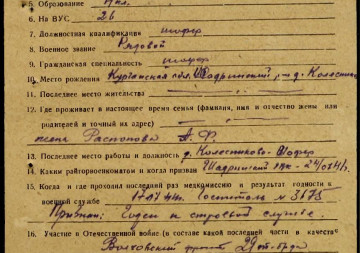 5. Образование 4 кл.
6. На ВУС 26
7. Должностная квалификация шофер
8. Военное звание Рядовой
9. Гражданская специальность шофер
10. Место рождения Курганская обл. Шадринский р-н д. Колесник
11. Последнее место жительства
12. Где проживает в настоящее время семья (фамилия, имя и отчество жены или
родителей и точный их адрес)
жена Распопова А. Ф.
13. Последнее место работы и должность д. Колесниково шофер
14. Каким райгорвоенкоматом и когда призван Шадринский рвк 24/VI 41 г
15. Когда и где проходил последний раз медкомиссию и результат годности к
военной службе 17.07.44г. Госпиталь № 3675
Признан: Годен к строевой службе.
16. Участие в Отечественной войне (в составе какой последней части и качестве
Волховский фронт 29